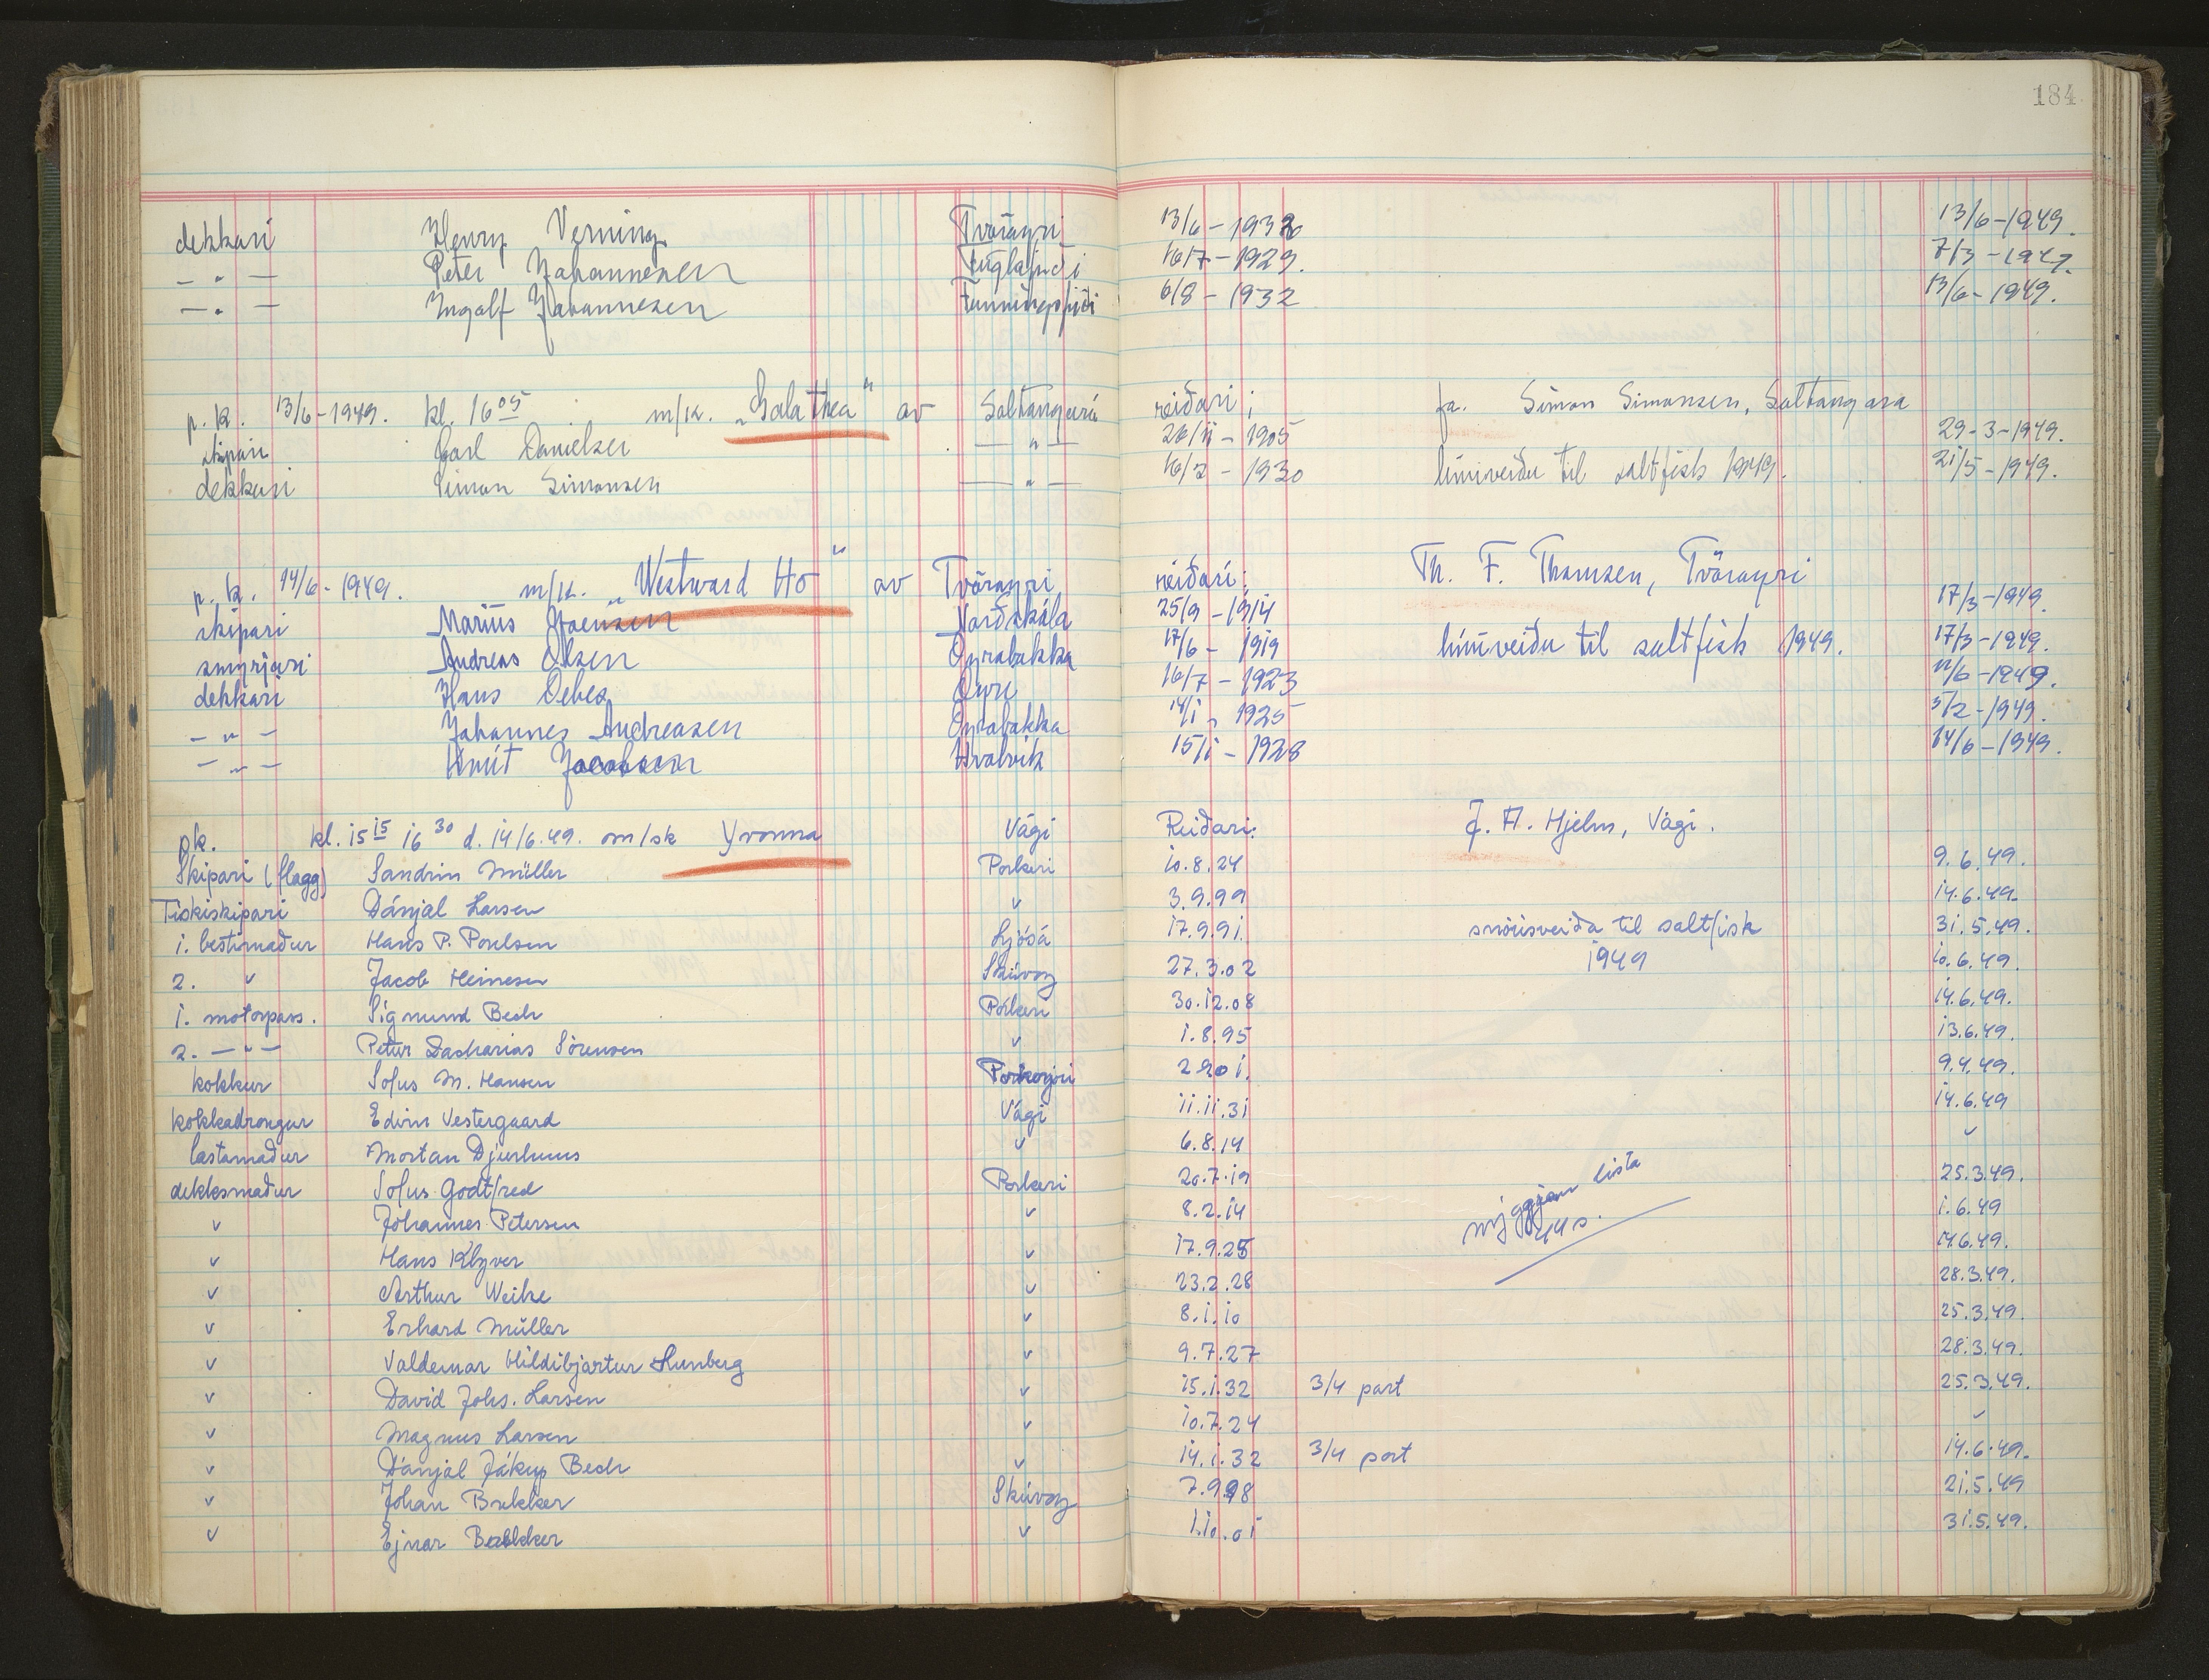 184
dekkari Henry Verning Tvörayri 13/6-1932 13/6-1949.
- " - Peter Johannesen Fuglafirdi 16/7-1929. 7/3-1949.
- " - Ingolf Johannesen Funningsfirdi 6/8-1932 13/6-1949.
p. k. 13/6-1949. kl. 16 05 m/k. „Galathea" av Saltangará reiðari; fa. Simon Simonsen, Saltangará
skipari Carl Danielsen - " - 26/11-1905 29-3-1949.
dekkari Simon Simonsen - " - 16/2-1930 línuveiðu til saltfisk 1949. 21/5-1949.
p. k. 14/6-1949. m/k. „Westward Ho" av Tvörayri reiðari: Th. F. Thomsen, Tvörayri
skipari Marius Joensen Norðskála 25/9-1914 17/3-1949.
smyrjari Andreas Olsen Oyrabakka 17/6-1919 línuveiðu til saltfisk 1949. 17/3-1949.
dekkari Hans Debes Oyri 16/7-1923 11/6-1949.
- " - Johannes Andreasen Oyrabakka 14/1-1925 5/2-1949.
- " - Knút Jacobsen Hvalvík 15/1-1928 14/6-1949.
pk. kl. 15 15 16 30 d. 14/6.49. m/sk Yvonna Vági Reiðari: J. A. Hjelm, Vági.
Skipari (flagg) Sandrin Müller Porkeri 10.8.24 9.6.49.
Fiskiskipari Dánjal Larsen " 3.9.99 14.6.49.
1. bestimaður Hans P. Poulsen Ljósá 17.9.91. snörisveiða til saltfisk 31.5.49.
2. " Jacob Heinesen Skúvoy 27.3.02 1949 10.6.49.
1. motorpass. Sigmund Bech Porkeri 30.12.08 14.6.49.
2. - " - Petur Zacharias Sörensen " 1.8.95 13.6.49.
kokkur Sofus M. Hansen 2.9.01. 9.4.49.
kokkadrongur Edvin Vestergaard Vági 11.11.31 14.6.49
lastamaður Mortan Djurhuus " 6.8.14 "
dekksmaður Sofus Godtfred Porkeri 20.7.19 25.3.49.
" Jóhannes Petersen " 8.2.14 nýggjan lista 1.6.49
" Hans Klyver " 17.9.25 14.6.49.
" Arthur Weihe " 23.2.28 28.3.49.
" Erhard Müller " 8.1.10 25.3.49.
" Valdemar Hildibjartur Hunberg " 9.7.27 28.3.49.
" David Johs. Larsen " 15.1.32 3/4 part 25.3.49.
" Magnus Larsen " 10.7.24 "
" Dánjal Jákup Bech " 14.1.32 3/4 part 14.6.49.
" Johan Bekker Skúvoy 7.9.98 21.5.49
" Ejnar " 1.10.01 31.5.49.